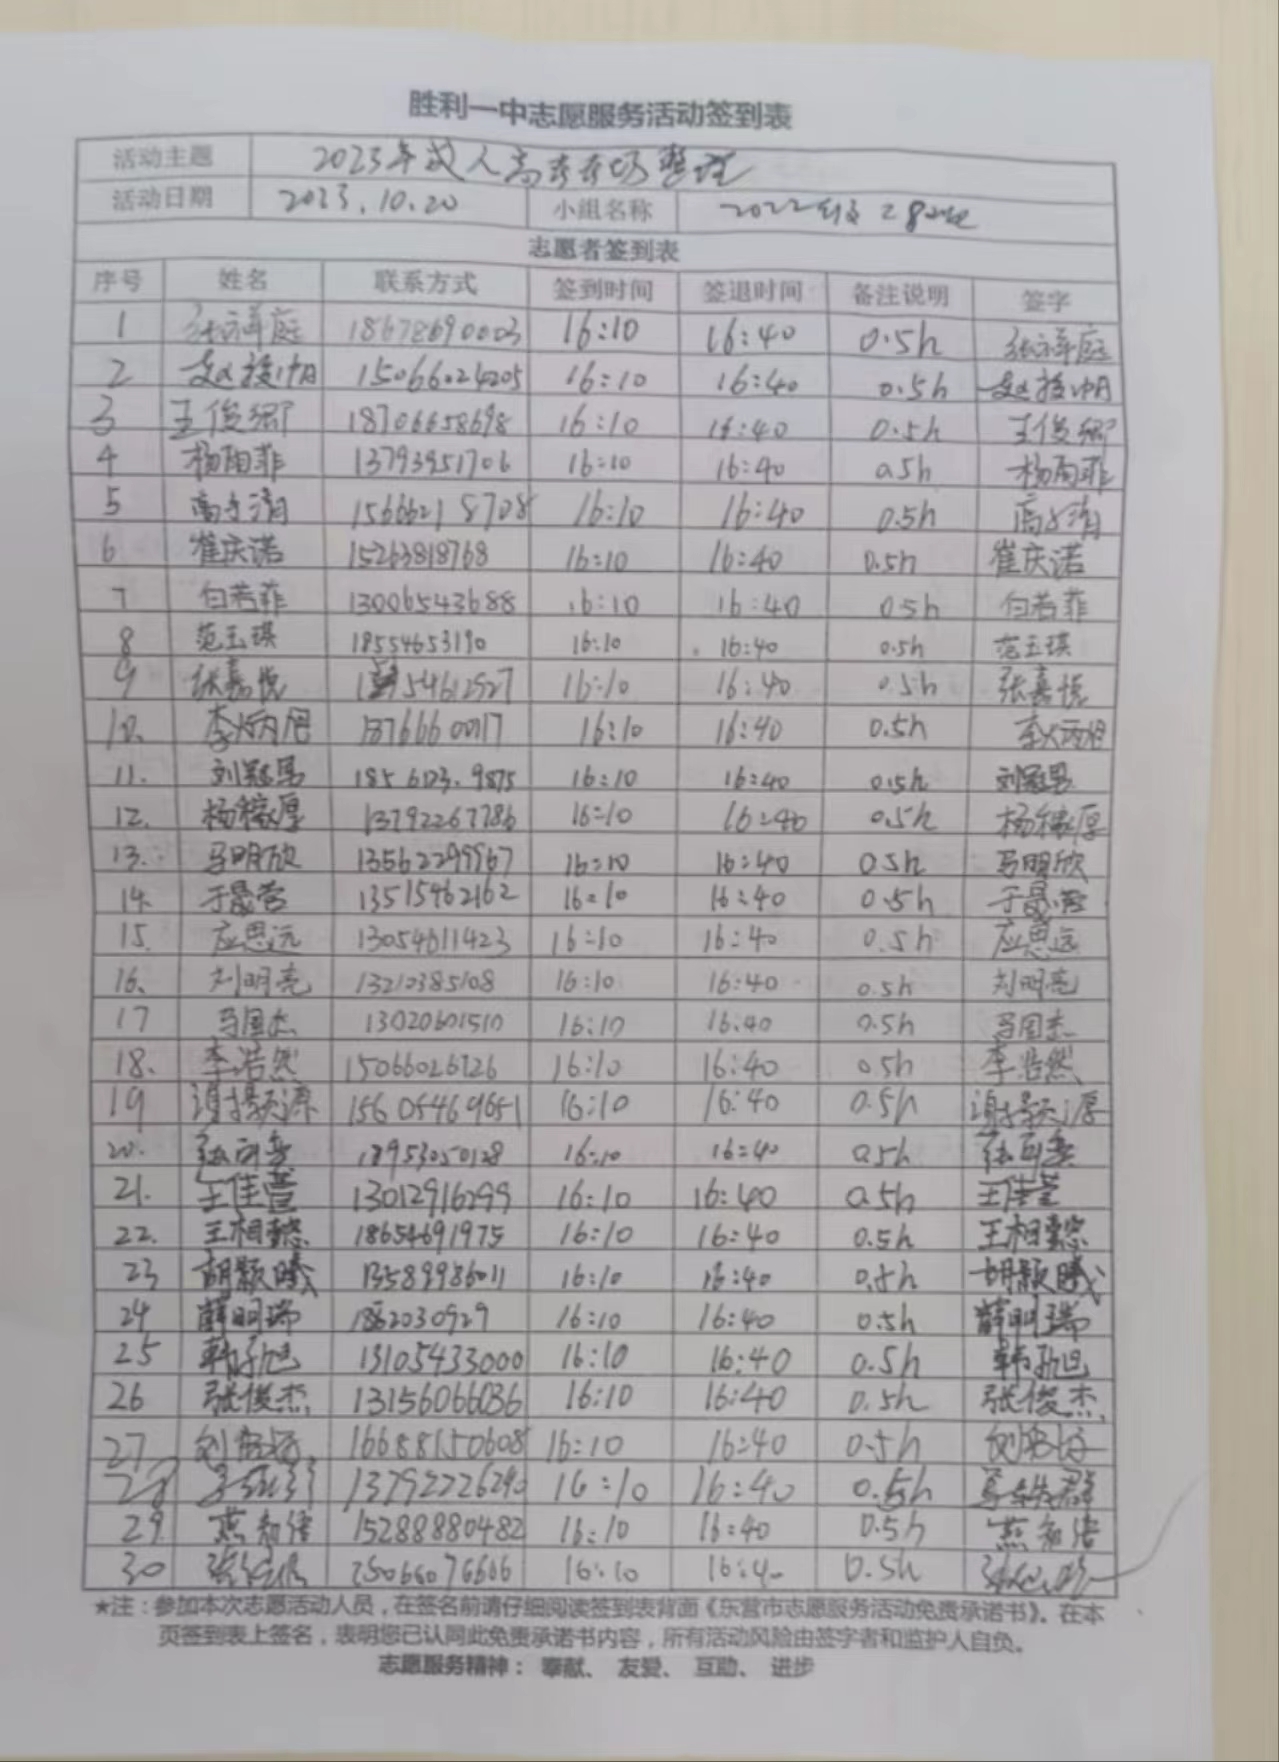 胜利一中志愿服务活动签到表
活动主题 2023年成人高考考场整理
活动日期 2023.10.20 小组名称 2022级28班
志愿者签到表
序号 姓名 联系方式 签到时间 签退时间 备注说明 签字
1 张祥庭 16:10 16:40 0.5h 张祥庭
2 15066024205 16:10 16:40 0.5h
3 王俊卿 18706658698 16:10 16:40 0.5h 王俊卿
4 杨雨菲 13793951706 16:10 16:40 0.5h 杨雨菲
5 高子清 15666218708 16:10 16:40 0.5h 高子清
6 崔庆诺 15263818768 16:10 16:40 0.5h 崔庆诺
7 白若菲 13006543688 16:10 16:40 0.5h 白若菲
8 范玉琪 18554653190 16:10 16:40 0.5h 范玉琪
9 张嘉悦 16:10 16:40 0.5h 张嘉悦
10. 16:10 16:40 0.5h
11. 16:10 16:40 0.5h
12. 杨稼厚 13792267786 16:10 16:40 0.5h 杨稼厚
13. 马明欣 13562299967 16:10 16:40 0.5h 马明欣
14. 13515462162 16:10 16:40 0.5h
15. 应思远 13054611423 16:10 16:40 0.5h 应思远
16. 刘明亮 13210385108 16:10 16:40 0.5h 刘明亮
17 马国杰 13020601510 16:10 16:40 0.5h 马国杰
18. 李浩然 15066026726 16:10 16:40 0.5h 李浩然
19 15605469651 16:10 16:40 0.5h
20. 18953050128 16:10 16:40 0.5h
21. 王佳萱 13012916299 16:10 16:40 0.5h 王佳萱
22. 王相懿 18654691975 16:10 16:40 0.5h 王相懿
23 胡颢曦 13589986011 16:10 16:40 0.5h 胡颢曦
24 薛明瑞 16:10 16:40 0.5h 薛明瑞
25 13105433000 16:10 16:40 0.5h
26 张俊杰 13156066036 16:10 16:40 0.5h 张俊杰
27 16688150608 16:10 16:40 0.5h
28 13792226240 16:10 16:40 0.5h
29 15288880482 16:10 16:40 0.5h
30 16:10 16:40 0.5h
★注：参加本次志愿活动人员，在签名前请仔细阅读签到表背面《东营市志愿服务活动免责承诺书》。在本
页签到表上签名，表明您已认同此免责承诺书内容，所有活动风险由签字者和监护人自负。
志愿服务精神： 奉献、 友爱、 互助、 进步